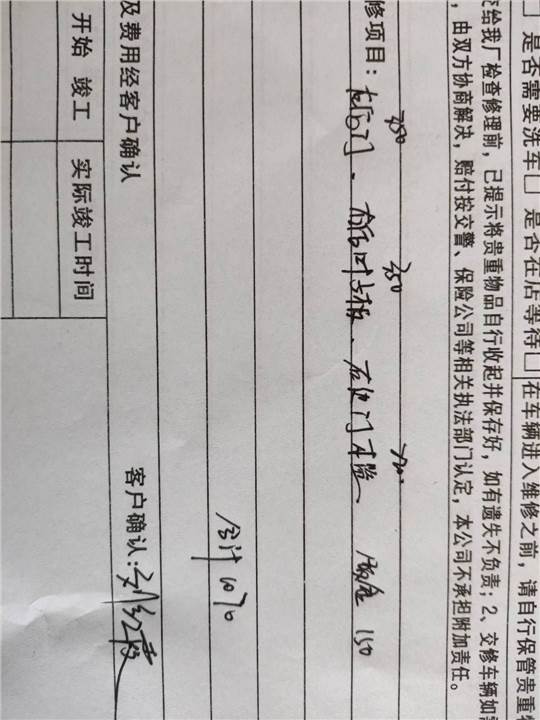 □ 是否需要洗车□ 是否在店等待□
在车辆进入维修之前，请自行保管贵重物
交给我厂检查修理前，已提示将贵重物品自行收起并保存好，如有遗失不负责；2、交修车辆如
，由双方协商解决，赔付按交警、保险公司等相关执法部门认定，本公司不承担附加责任。
350 350
修项目：右后门、右后叶子板、 150
合计
及费用经客户确认 客户确认：
开始 竣工 实际竣工时间